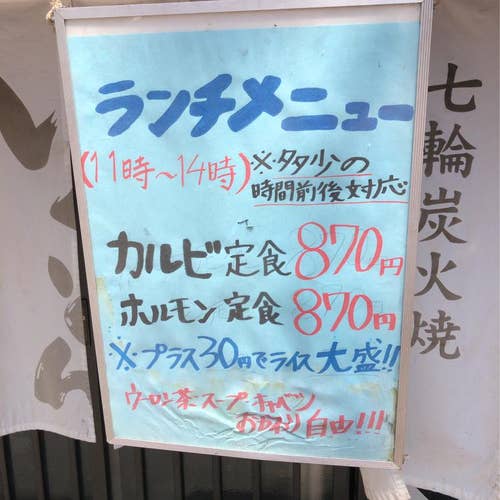 ランチメニュー
(11時～14時)
※多少の
時間前後対応
カルビ定食870円
ホルモン定食870円
※プラス30円でライス大盛!!
ウーロン茶スープキャベツ
おかわり自由!!!
七輪炭火焼